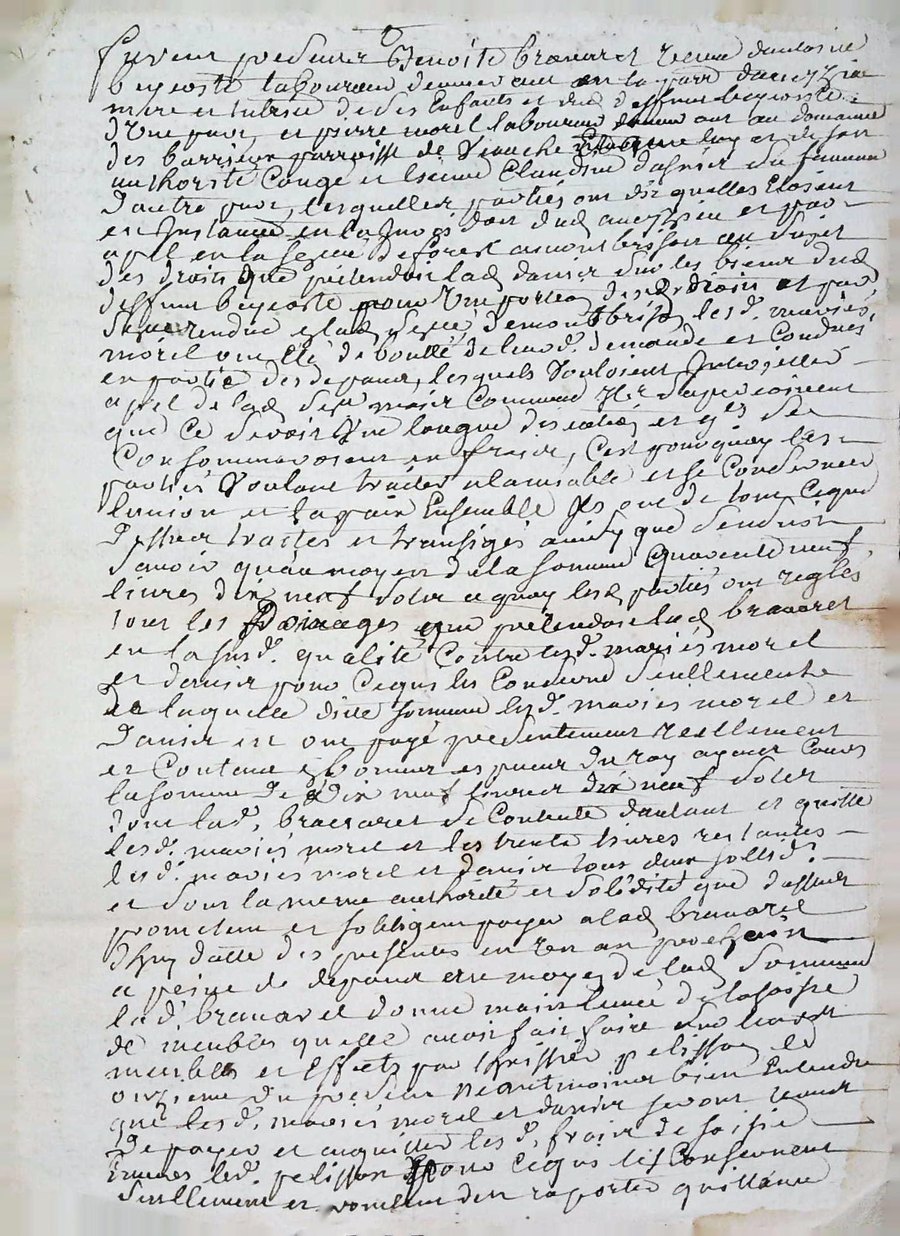 furent presents Benoite bravaret veuve d'antoine
beyssoste laboureur demeurant en la parr d'ancyzieu
mere et tutrice de ses Enfants et dud deffunt beyssoste
d'Une part, et pierre morel laboureur demeurant au domaine
des barrieux parroisse de luy et de son
authorité Congé et licence Claudine danier sa femme
d'autre part, lesquelles parties ont dit quelles Etoient
en Instance en la
apel en la de forest a montbrison au Sujet
des droits que pretendoit lad danier sur les biens dud
deffunt beyssoste pour Une portion desd droits et par
rendue e lad de montbrison les d. mariés
morel ont Eté deboutté de leurd. demande et Condnés
en partie des depens, lesquels Vouloient Interjetter
apel de lad mais Comme Ils apercoivent
que Ce seroit Une longue et qls se
Consommeroient en frais, C'est pourquoy les
parties Voulant traiter a lamiable et se Conserver
lunion et la paix Ensemble Ils ont de tout Ceque
dessus traites et transiges ainsy que s'ensuit
Scavoir quau moyen de la somme quarente neuf
livres dix neuf sols a quoy lesd parties ont reglés
tous les que pretendoit lad bravaret
en la susd. qualité Contre lesd. mariés morel
et danier pour Ceque les Concerne seullement
de laquelle dite somme lesd. mariés morel et
danier en ont payé presentement reellement
et Contant en bonnes especes du roy ayant Cours
la somme de dix neuf livres dix neuf sols
dont lad. bravaret se Contente d'autant et quitte
lesd. mariés morel et les trente livres restantes
lesd. mariés morel et danier tous deux sollid.
et sous la meme authorité et solidité que dessus
promettent et sobligent payer a lad bravaret
d'huy datte des presentes en Un an prochain
a peine de depens au moyen de lad somme
lad. bravaret donne main levée de la saisie
de meubles quelle avoit fait faire
meubles et Effects par lhuissier pelisson le
onzieme du present neantmoins bien Entendu
que lesd. mariés morel et danier seront tenus
de payer et acquitter lesd. frais de saisie
Envers led. pelisson pour Ceque les Concernent
seullement et raporter quittance